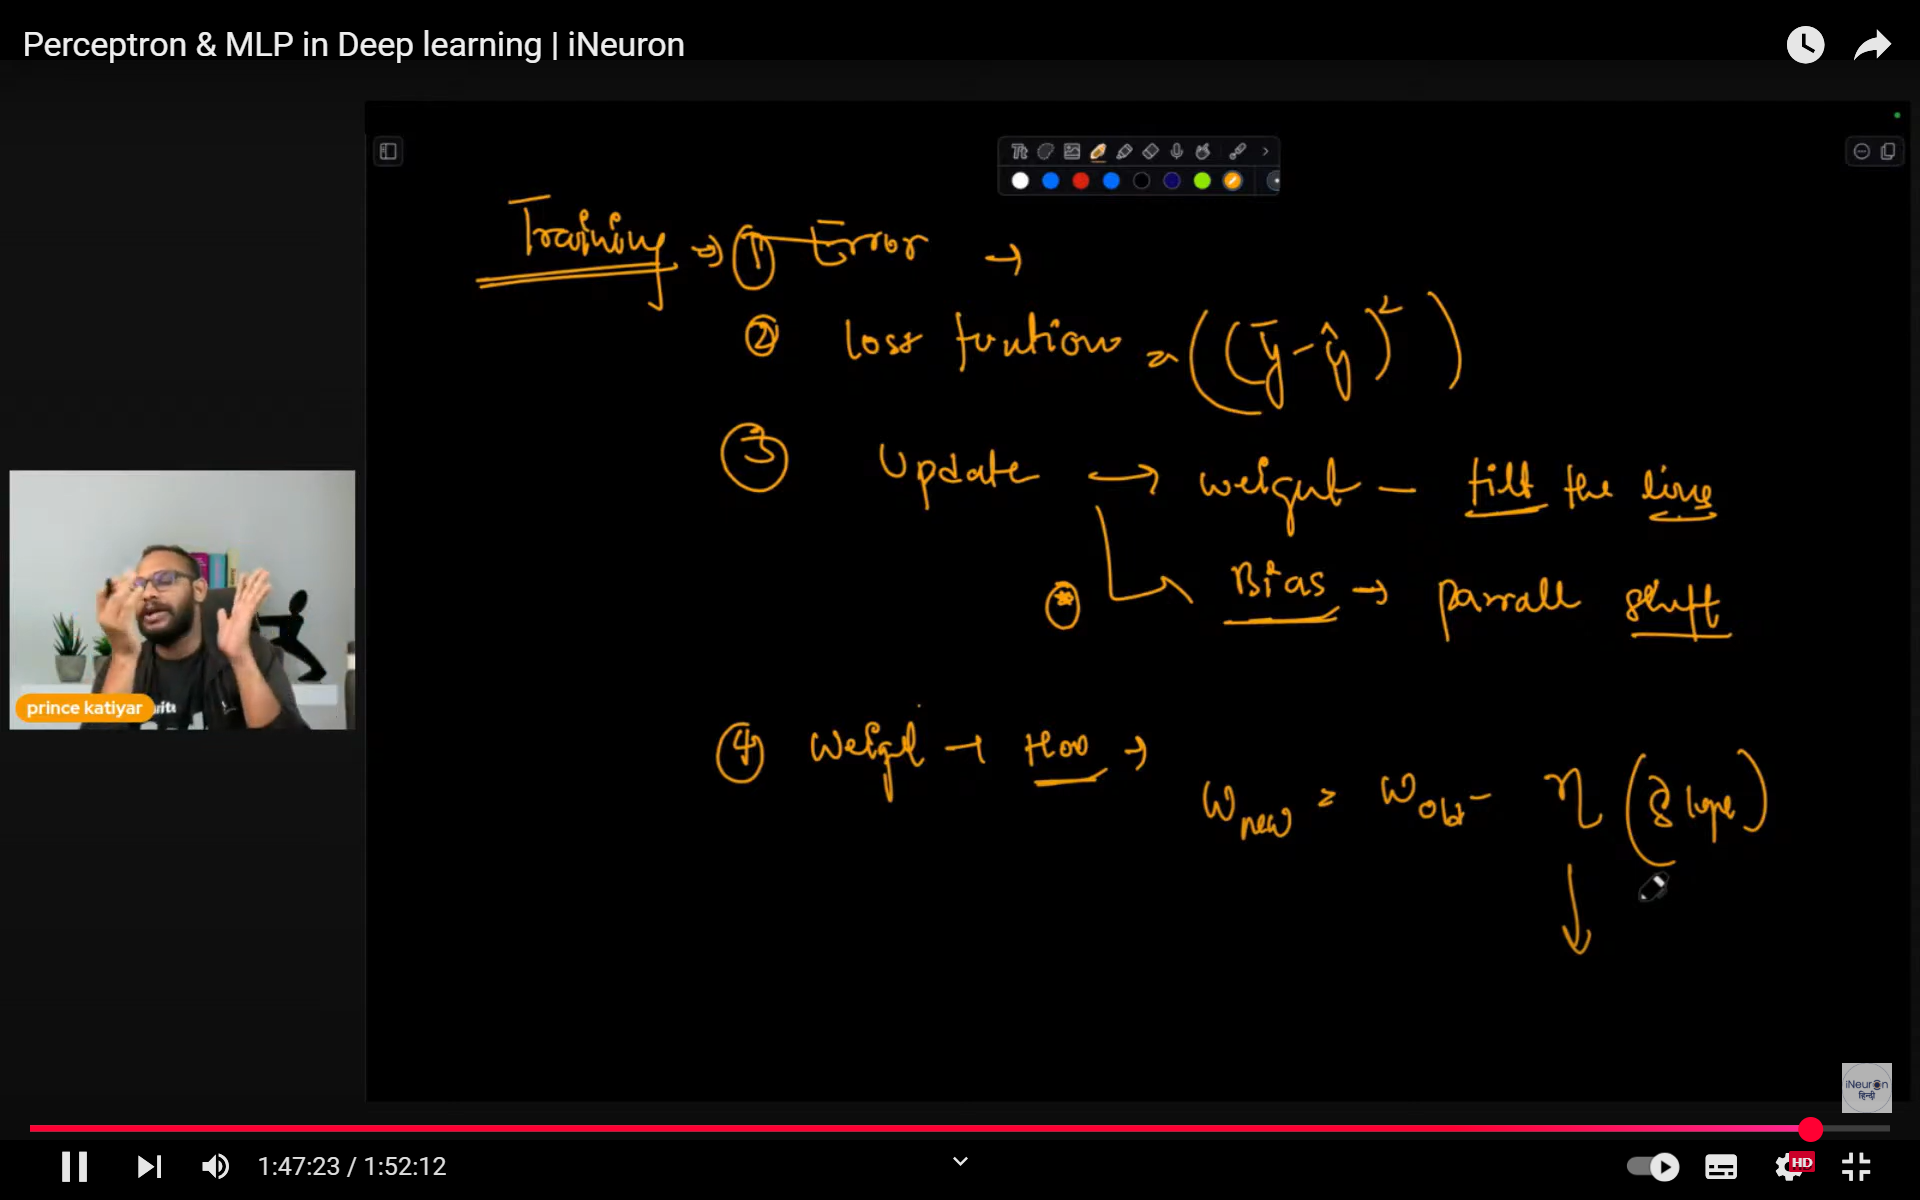 Perceptron & MLP in Deep learning | iNeuron
Training → ① Error →
② loss funtion = ((y - ŷ)²)
③ Update → weight – tilt the line
Bias → parrall shift
④ Weigt → How →
W new = W old - η (slope)
prince katiyar
iNeuron
हिन्दी
1:47:23 / 1:52:12
HD